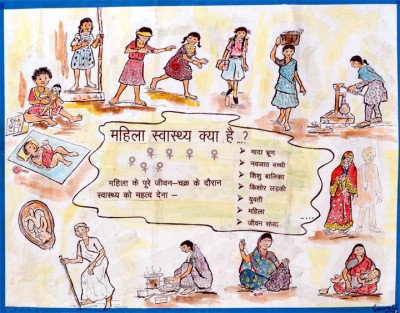 महिला स्वास्थ्य क्या है...?
महिला के पूरे जीवन-चक्र के दौरान
स्वास्थ्य को महत्व देना –
मादा भ्रूण
नवजात बच्ची
शिशु बालिका
किशोर लड़की
युवती
महिला
जीवन संध्या